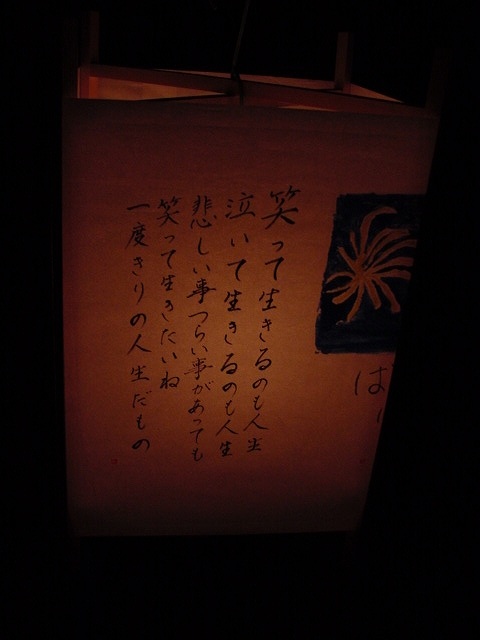 は
笑って生きるのも人生
泣いて生きるのも人生
悲しい事つらい事があっても
笑って生きたいね
一度きりの人生だもの